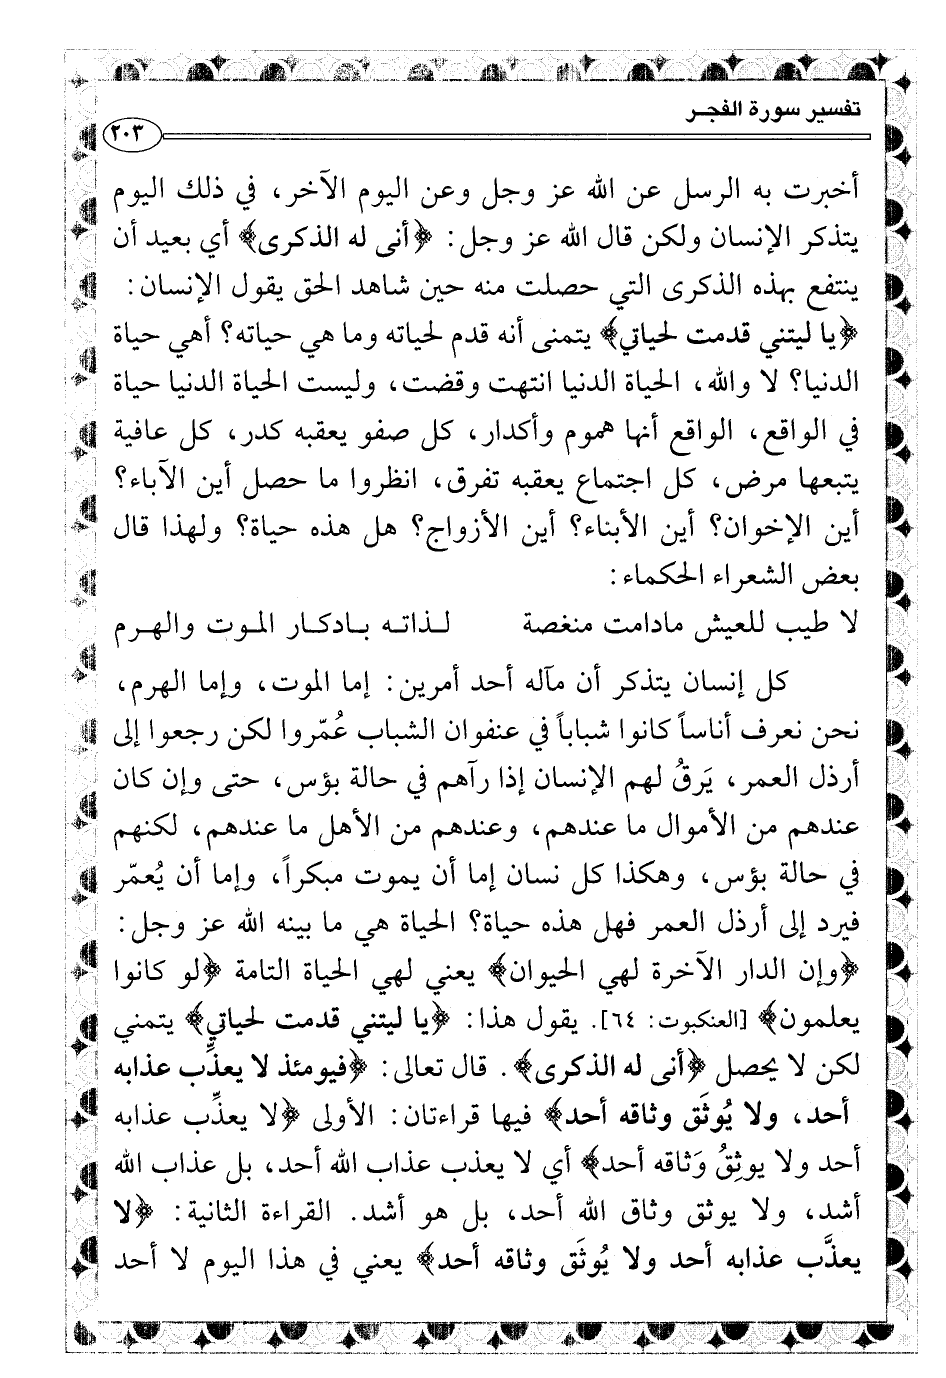 تفسير سورة الفجر
٢٠٣
أخبرت به الرسل عن الله عز وجل وعن اليوم الآخر، في ذلك اليوم
يتذكر الإنسان ولكن قال الله عز وجل: ﴿أنى له الذكرى﴾ أي بعيد أن
ينتفع بهذه الذكرى التي حصلت منه حين شاهد الحق يقول الإنسان:
﴿يا ليتني قدمت لحياتي﴾ يتمنى أنه قدم لحياته وما هي حياته؟ أهي حياة
الدنيا؟ لا والله، الحياة الدنيا انتهت وقضت، وليست الحياة الدنيا حياة
في الواقع، الواقع أنها هموم وأكدار، كل صفو يعقبه كدر، كل عافية
يتبعها مرض، كل اجتماع يعقبه تفرق، انظروا ما حصل أين الآباء؟
أين الإخوان؟ أين الأبناء؟ أين الأزواج؟ هل هذه حياة؟ ولهذا قال
بعض الشعراء الحكماء:
لا طيب للعيش مادامت منغصة لذاته بادكار الموت والهرم
كل إنسان يتذكر أن مآله أحد أمرين: إما الموت، وإما الهرم،
نحن نعرف أناساً كانوا شباباً في عنفوان الشباب عُمّروا لكن رجعوا إلى
أرذل العمر، يَرقُ لهم الإنسان إذا رآهم في حالة بؤس، حتى وإن كان
عندهم من الأموال ما عندهم، وعندهم من الأهل ما عندهم، لكنهم
في حالة بؤس، وهكذا كل نسان إما أن يموت مبكراً، وإما أن يُعمّر
فيرد إلى أرذل العمر فهل هذه حياة؟ الحياة هي ما بينه الله عز وجل:
﴿وإن الدار الآخرة لهي الحيوان﴾ يعني لهي الحياة التامة ﴿لو كانوا
يعلمون﴾ [العنكبوت: ٦٤]. يقول هذا: ﴿يا ليتني قدمت لحياتي﴾ يتمني
لكن لا يحصل ﴿أنى له الذكرى﴾. قال تعالى: ﴿فيومئذ لا يعذِّب عذابه
أحد، ولا يُوثَق وثاقه أحد﴾ فيها قراءتان: الأولى ﴿لا يعذِّب عذابه
أحد ولا يوثِقُ وَثاقه أحد﴾ أي لا يعذب عذاب الله أحد، بل عذاب الله
أشد، ولا يوثق وثاق الله أحد، بل هو أشد. القراءة الثانية: ﴿لا
يعذَّب عذابه أحد ولا يُوثَق وثاقه أحد﴾ يعني في هذا اليوم لا أحد